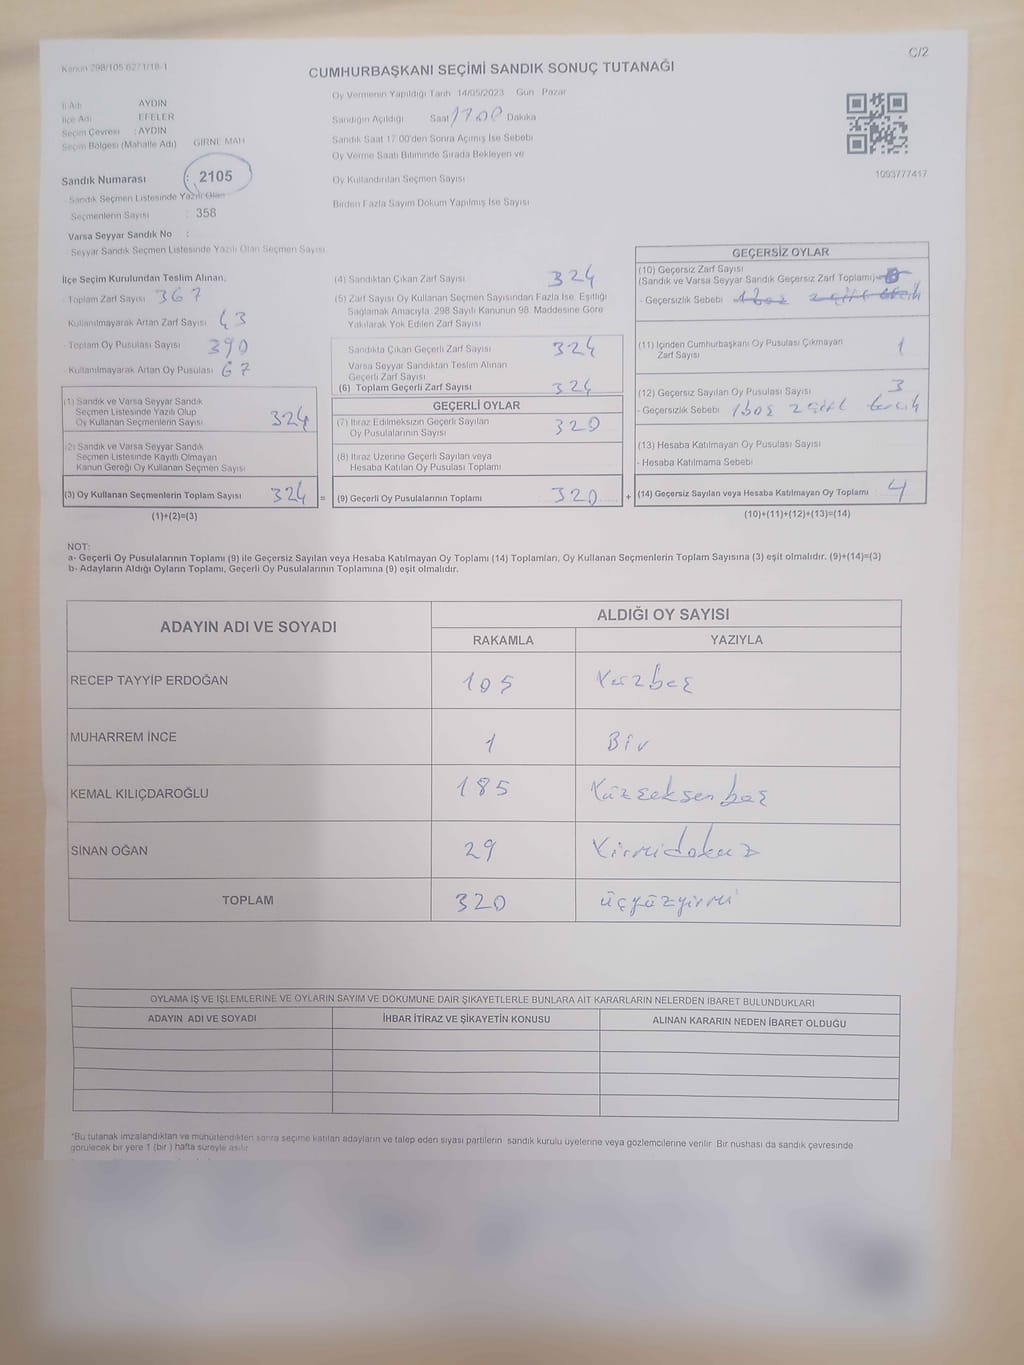 C/2
Kanun 298/105 6271/18-1
CUMHURBAŞKANI SEÇİMİ SANDIK SONUÇ TUTANAĞI
İl Adı AYDIN
İlçe Adı EFELER
Seçim Çevresi : AYDIN
Seçim Bölgesi (Mahalle Adı) GİRNE MAH
Sandık Numarası : 2105
- Sandık Seçmen Listesinde Yazılı Olan
Seçmenlerin Sayısı : 358
Varsa Seyyar Sandık No :
- Seyyar Sandık Seçmen Listesinde Yazılı Olan Seçmen Sayısı
Oy Vermenin Yapıldığı Tarih 14/05/2023 Gün Pazar
Sandığın Açıldığı Saat 1700 Dakika
Sandık Saat 17:00'den Sonra Açılmış İse Sebebi
Oy Verme Saati Bitiminde Sırada Bekleyen ve
Oy Kullandırılan Seçmen Sayısı
Birden Fazla Sayım Döküm Yapılmış İse Sayısı
1093777417
İlçe Seçim Kurulundan Teslim Alınan,
- Toplam Zarf Sayısı 367
Kullanılmayarak Artan Zarf Sayısı 43
- Toplam Oy Pusulası Sayısı 390
- Kullanılmayarak Artan Oy Pusulası 67
(1) Sandık ve Varsa Seyyar Sandık
Seçmen Listesinde Yazılı Olup
Oy Kullanan Seçmenlerin Sayısı 324
(2) Sandık ve Varsa Seyyar Sandık
Seçmen Listesinde Kayıtlı Olmayan
Kanun Gereği Oy Kullanan Seçmen Sayısı
(3) Oy Kullanan Seçmenlerin Toplam Sayısı 324 =
(1)+(2)=(3)
(4) Sandıktan Çıkan Zarf Sayısı 324
(5) Zarf Sayısı Oy Kullanan Seçmen Sayısından Fazla İse, Eşitliği
Sağlamak Amacıyla, 298 Sayılı Kanunun 98. Maddesine Göre
Yakılarak Yok Edilen Zarf Sayısı
Sandıkta Çıkan Geçerli Zarf Sayısı 324
Varsa Seyyar Sandıktan Teslim Alınan
Geçerli Zarf Sayısı
(6) Toplam Geçerli Zarf Sayısı 324
GEÇERLİ OYLAR
(7) İtiraz Edilmeksizin Geçerli Sayılan
Oy Pusulalarının Sayısı 320
(8) İtiraz Üzerine Geçerli Sayılan veya
Hesaba Katılan Oy Pusulası Toplamı
(9) Geçerli Oy Pusulalarının Toplamı 320 +
GEÇERSİZ OYLAR
(10) Geçersiz Zarf Sayısı
(Sandık ve Varsa Seyyar Sandık Geçersiz Zarf Toplamı)
- Geçersizlik Sebebi 1 boş 2 çift tercih
(11) İçinden Cumhurbaşkanı Oy Pusulası Çıkmayan
Zarf Sayısı 1
(12) Geçersiz Sayılan Oy Pusulası Sayısı 3
- Geçersizlik Sebebi 1 boş 2 çift tercih
(13) Hesaba Katılmayan Oy Pusulası Sayısı
- Hesaba Katılmama Sebebi
(14) Geçersiz Sayılan veya Hesaba Katılmayan Oy Toplamı 4
(10)+(11)+(12)+(13)=(14)
NOT:
a- Geçerli Oy Pusulalarının Toplamı (9) ile Geçersiz Sayılan veya Hesaba Katılmayan Oy Toplamı (14) Toplamları, Oy Kullanan Seçmenlerin Toplam Sayısına (3) eşit olmalıdır. (9)+(14)=(3)
b- Adayların Aldığı Oyların Toplamı, Geçerli Oy Pusulalarının Toplamına (9) eşit olmalıdır.
ADAYIN ADI VE SOYADI
ALDIĞI OY SAYISI
RAKAMLA YAZIYLA
RECEP TAYYİP ERDOĞAN 105 Yüzbeş
MUHARREM İNCE 1 Bir
KEMAL KILIÇDAROĞLU 185 Yüzseksenbeş
SİNAN OĞAN 29 Yirmidokuz
TOPLAM 320 üçyüzyirmi
OYLAMA İŞ VE İŞLEMLERİNE VE OYLARIN SAYIM VE DÖKÜMÜNE DAİR ŞİKAYETLERLE BUNLARA AİT KARARLARIN NELERDEN İBARET BULUNDUKLARI
ADAYIN ADI VE SOYADI İHBAR İTİRAZ VE ŞİKAYETİN KONUSU ALINAN KARARIN NEDEN İBARET OLDUĞU
*Bu tutanak imzalandıktan ve mühürlendikten sonra seçime katılan adayların ve talep eden siyasi partilerin sandık kurulu üyelerine veya gözlemcilerine verilir. Bir nüshası da sandık çevresinde
görülecek bir yere 1 (bir) hafta süreyle asılır